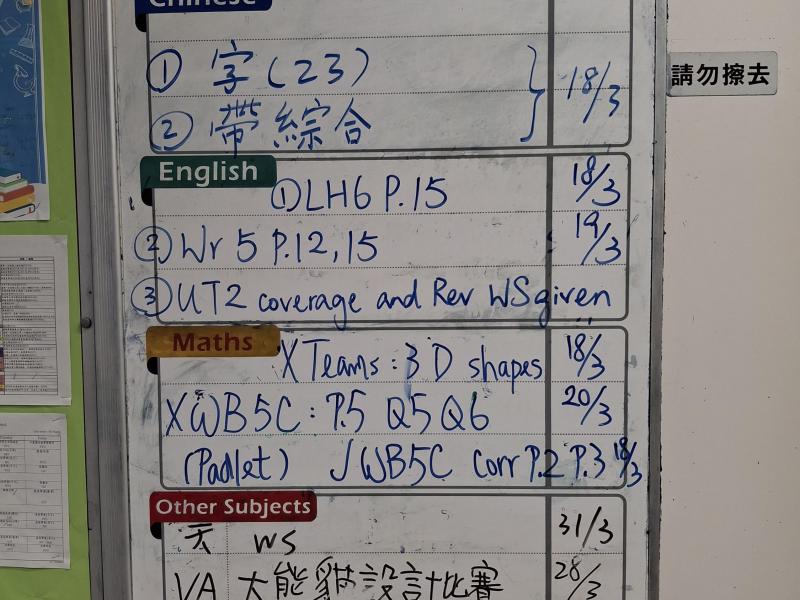 Chinese
① 字(23)
② 帶綜合 } 18/3
請勿擦去
English
① LH6 P.15 18/3
② Wr 5 P.12,15 19/3
③ UT2 coverage and Rev WS given
Maths
X Teams : 3D shapes 18/3
X WB5C : P.5 Q5 Q6 20/3
(Padlet) √ WB5C Corr P.2 P.3 18/3
Other Subjects
WS 31/3
VA 大能貓設計比賽 28/3